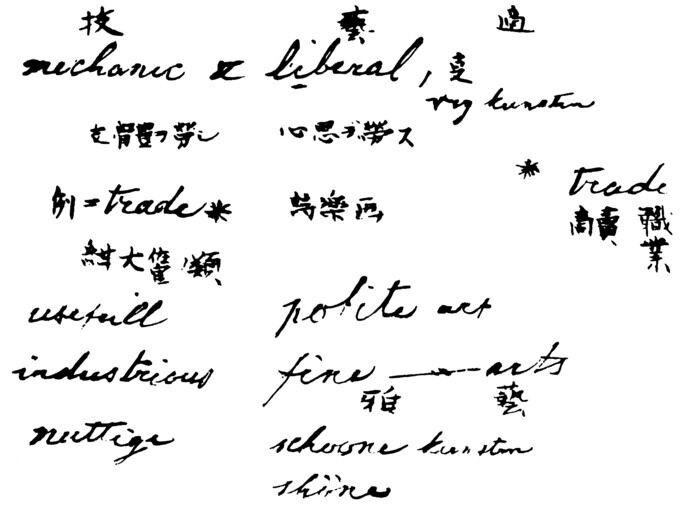 技 藝 過
mechanic & liberal,
vry kunsten
支體ヲ勞シ 心思ヲ勞ス
例ニ trade * 詩樂画
* trade
商賣 職業
大 類
usefull polite art
industrious fine — arts
雅 藝
nuttige schoone kunsten
shöne